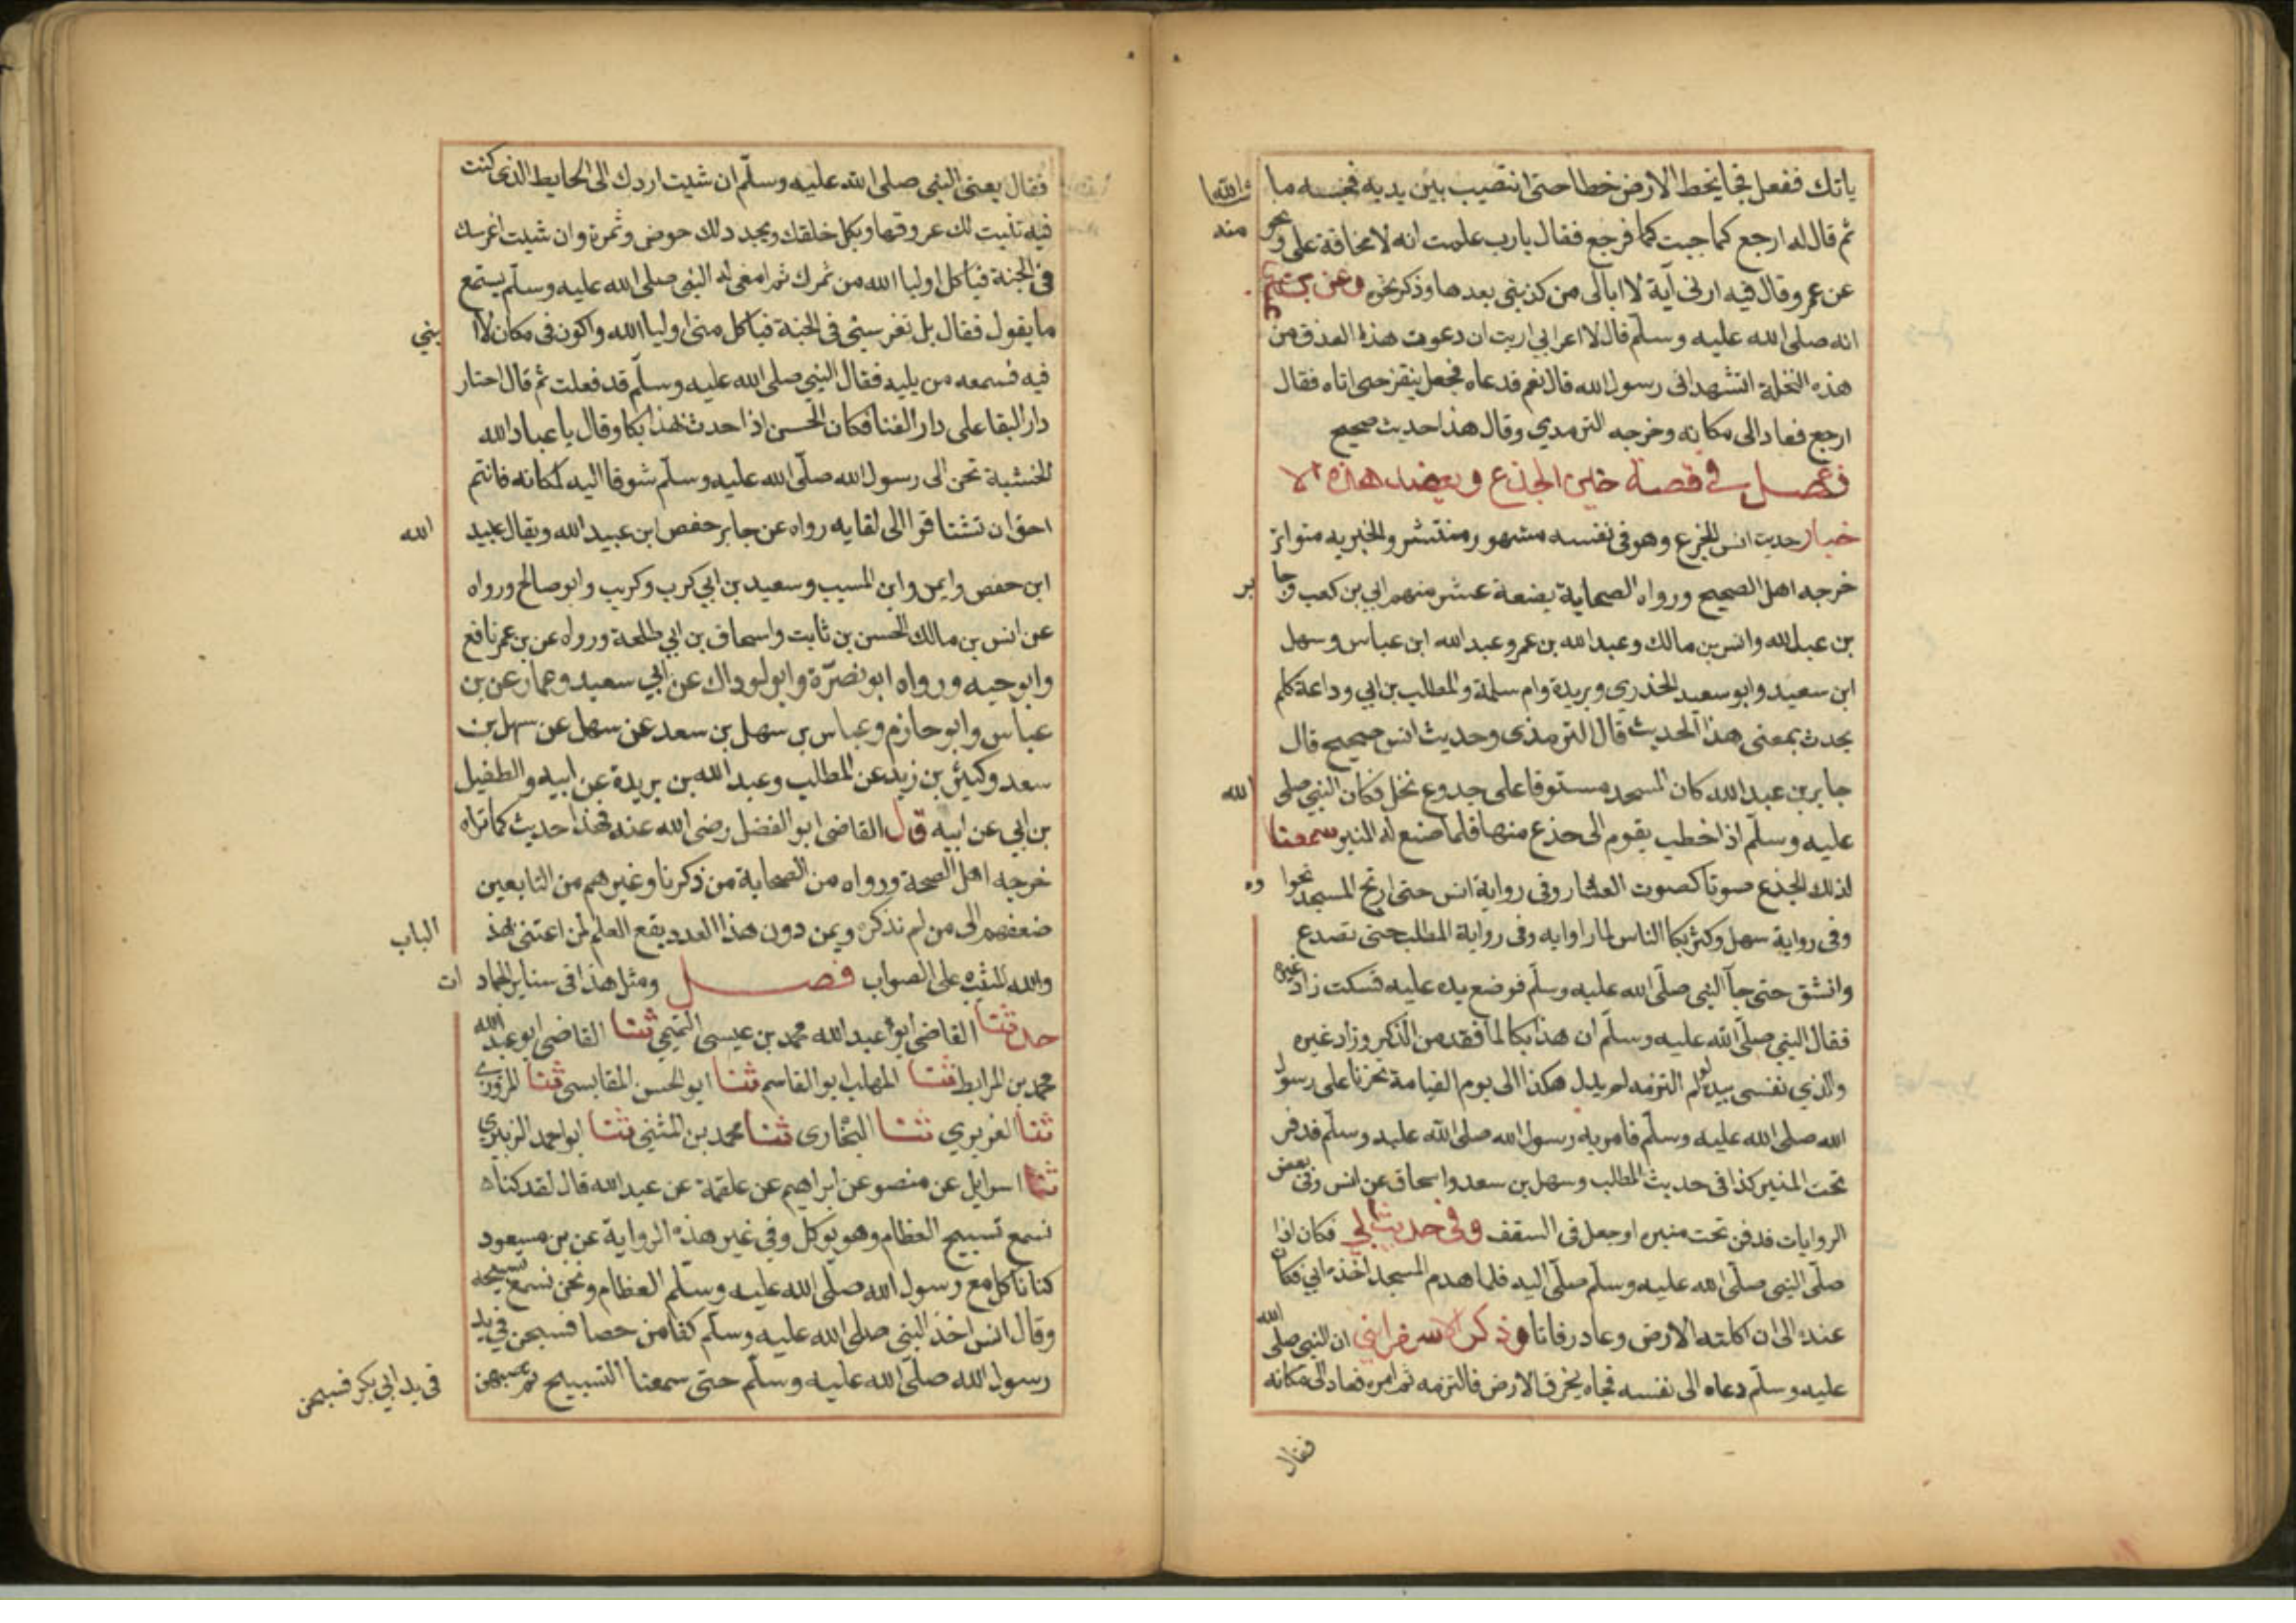 ياتك ففعل فجا يخط الارض خطا حتى انتصب بين يديه فحبسه ما شاالله
ثم قال له ارجع كما جيت كما فرجع فقال يارب علمت انه لا مخافة على ونحو منه
عن عمر وقال فيه ارنى آية لا ابالى من كذبنى بعدها وذكر نحوه وعن
انه صلى الله عليه وسلم قال لاعرابي اريت ان دعوت هذا العذق من
هذه النخلة اتشهد انى رسول الله قال نعم فدعاه فجعل ينقز حتى اتاه فقال
ارجع فعاد الى مكانه وخرجه الترمدي وقال هذا حديث صحيح
فصل في قصة حنين الجذع وبعضد هذه الا
خبار حديث انس الجزع وهو فى نفسه مشهور منتشر والخبر به متواتر
خرجه اهل الصحيح ورواه الصحابة بضعة عشر منهم ابي بن كعب وجا بر
بن عبد الله وانس بن مالك وعبد الله بن عمر وعبد الله ابن عباس وسهل
ابن سعيد وابو سعيد الخذري وبريدة وام سلمة والمطلب بن ابي وداعة كلهم
يحدث بمعنى هذا الحديث قال الترمذى وحديث انس صحيح قال
جابر بن عبد الله كان المسجد مستوفا على جدوع نخل فكان النبي صلى الله
عليه وسلم اذا خطب يقوم الى جذع منها فلما صنع له المنبر سمعنا
لذلك الجذع صوتا كصوت العشار وفى رواية انس حتى ارتج المسجد نحوا ره
وفى رواية سهل وكثر بكا الناس لما راوا به وفى رواية المطلب حتى تصدع
وانشق حتى جآ النبي صلى الله عليه وسلم فوضع يده عليه فسكت زاد غيره
فقال النبي صلى الله عليه وسلم ان هذا بكا لما فقد من الذكر وزاد غيره
والذي نفسى بيده لو لم التزمه لم يزل هكذا الى يوم القيامة تحزنا على رسول
الله صلى الله عليه وسلم فامر به رسول الله صلى الله عليه وسلم فدفن
تحت المنبر كذا فى حديث المطلب وسهل بن سعد واسحاق عن انس وفى بعض
الروايات فدفن تحت منبره او جعل فى السقف وفى حديث ابي فكان اذا
صلى النبي صلى الله عليه وسلم صلى اليه فلما هدم المسجد اخذه ابي فكان
عنده الى ان اكلته الارض وعاد رفاتا وذكر الاسفرايني ان النبي صلى الله
عليه وسلم دعاه الى نفسه فجاه يخرق الارض فالتزمه ثم امره فعاد الى مكانه
فقال
فقال يعنى النبي صلى الله عليه وسلم ان شيت اردك الى الحايط الذى كنت
فيه تنبت لك عروقها ويكل خلقك ويجدد لك حوض وثمرة وان شيت اغرسك
فى الجنة فياكل اوليا الله من ثمرك ثم اصغى له النبى صلى الله عليه وسلم يستمع
ما يقول فقال بل تغرسنى فى الجنة فياكل منى اوليا الله واكون فى مكان لا ا بني
فيه فسمعه من يليه فقال النبي صلى الله عليه وسلم قد فعلت ثم قال احتار
دار البقا على دار الفنا فكان الحسن اذا حدث بهذا بكا وقال يا عباد الله
الخشبة تحن الى رسول الله صلى الله عليه وسلم شوقا اليه لمكانه فانتم
احق ان تشتاقوا الى لقايه رواه عن جابر حفص ابن عبيد الله ويقال عبيد الله
ابن حفص وايمن وابن المسيب وسعيد بن ابي كرب وكريب وابو صالح ورواه
عن انس بن مالك الحسن بن ثابت واسحاق بن ابي طلحة ورواه عن بن عمر نافع
وابو حيه ورواه ابو نضرة وابو لوداك عن ابي سعيد وعمار عن بن
عباس وابو حازم وعباس بن سهل بن سعد عن سهل عن سهل بن
سعد وكثير بن زيد عن المطلب وعبد الله بن بريدة عن ابيه والطفيل
بن ابي عن ابيه قال القاضى ابو الفضل رضى الله عنه فهذا حديث كما تراه
خرجه اهل الصحة ورواه من الصحابة من ذكرنا وغيرهم من التابعين
ضعفهم الى من لم نذكره وبمن دون هذا العدد يقع العلم لمن اعتنى بهذ الباب
والله المثبت على الصواب فصل ومثل هذا فى ساير الجماد ات
حدثنا القاضى ابو عبد الله محمد بن عيسى التميمي ثنا القاضى ابو عبد الله
محمد بن المرابط ثنا المهلب ابو القاسم ثنا ابو الحسن المقابسى ثنا المروزي
ثنا الفربري ثنا البخارى ثنا محمد بن المثنى ثنا ابو احمد الزبيري
ثنا اسرايل عن منصو عن ابراهيم عن علقمة عن عبد الله قال لقد كنا
نسمع تسبيح الطعام وهو يوكل وفى غير هذه الرواية عن بن مسعود
كنا ناكل مع رسول الله صلى الله عليه وسلم الطعام ونحن نسمع تسبيحه
وقال انس اخذ النبي صلى الله عليه وسلم كفا من حصا فسبحن في يد
رسول الله صلى الله عليه وسلم حتى سمعنا التسبيح ثم صبهن فى يد ابي بكر فسبحن